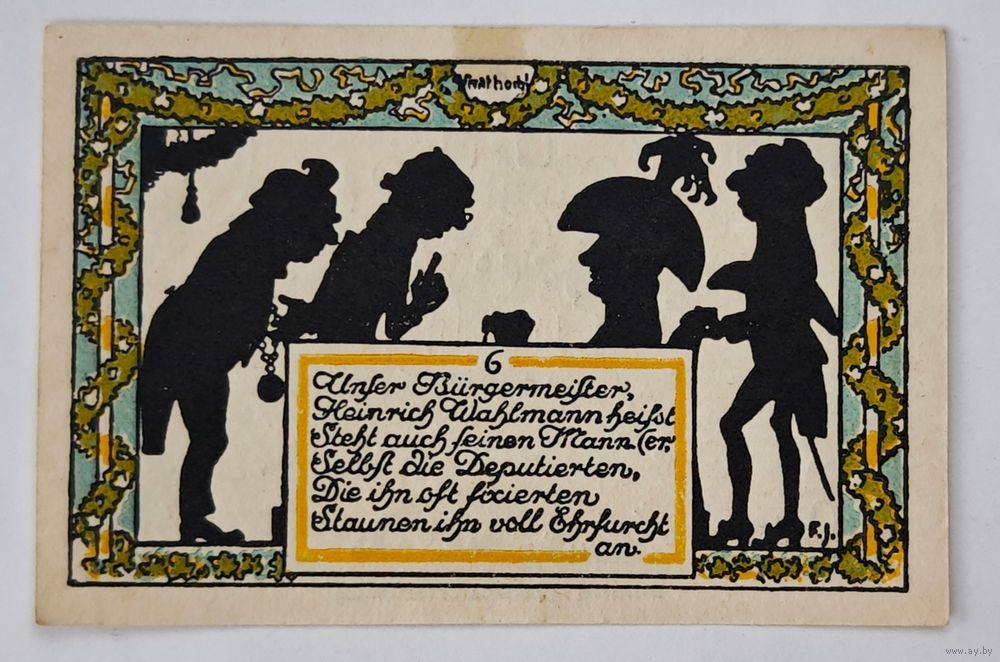 6
Unſer Bürgermeiſter,
Heinrich Wahlmann heiſst
Steht auch ſeinen Mann (er,
Selbſt die Deputierten,
Die ihn oft fixierten
Staunen ihn voll Ehrfurcht
an.
F.J.
www.ay.by